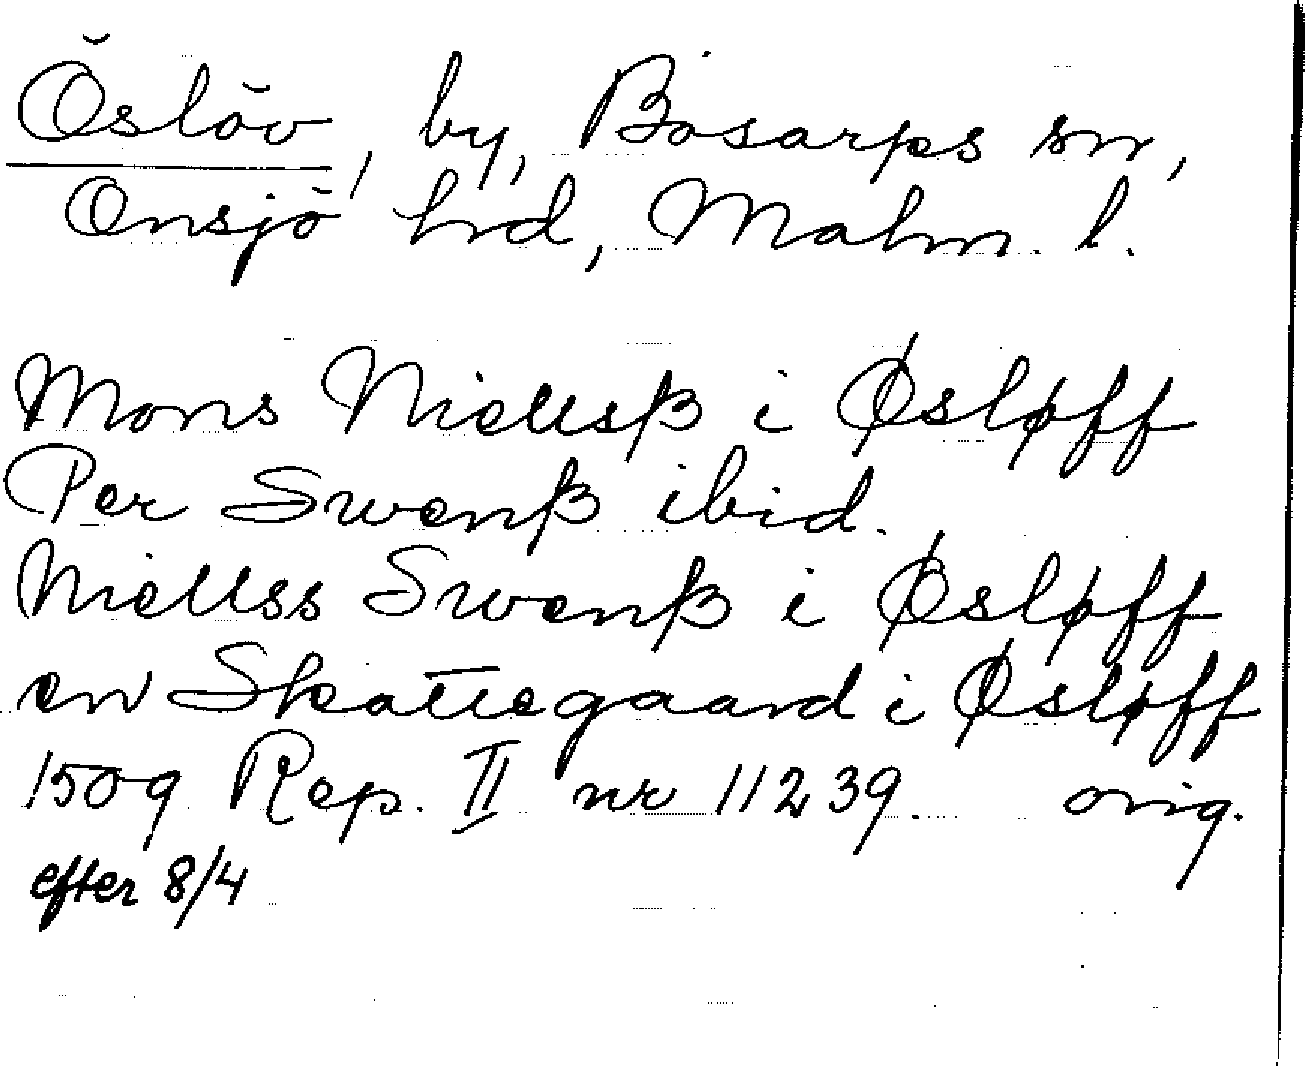 Öslöv, by, Bosarps sn,
Onsjö hd, Malm. l.
Mons Niellsß i Øsløff
Per Swenß ibid.
Niellss Swenß i Øsløff
en Skattegaard i Øsløff
1509 Rep. II nr 11239. orig.
efter 8/4